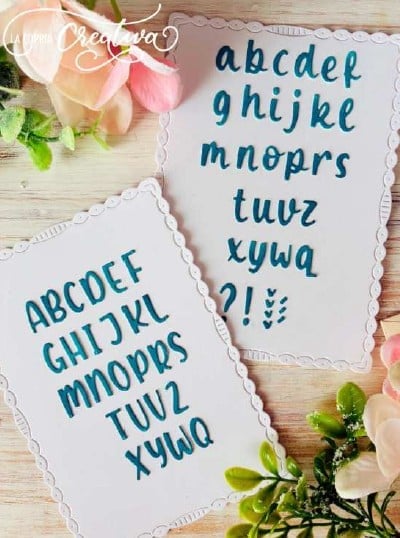 LA COPPIA Creativa
abcdef
ghijkl
mnoprs
tuvz
xywq
?!
ABCDEF
GHIJKL
MNOPRS
TUVZ
XYWQ